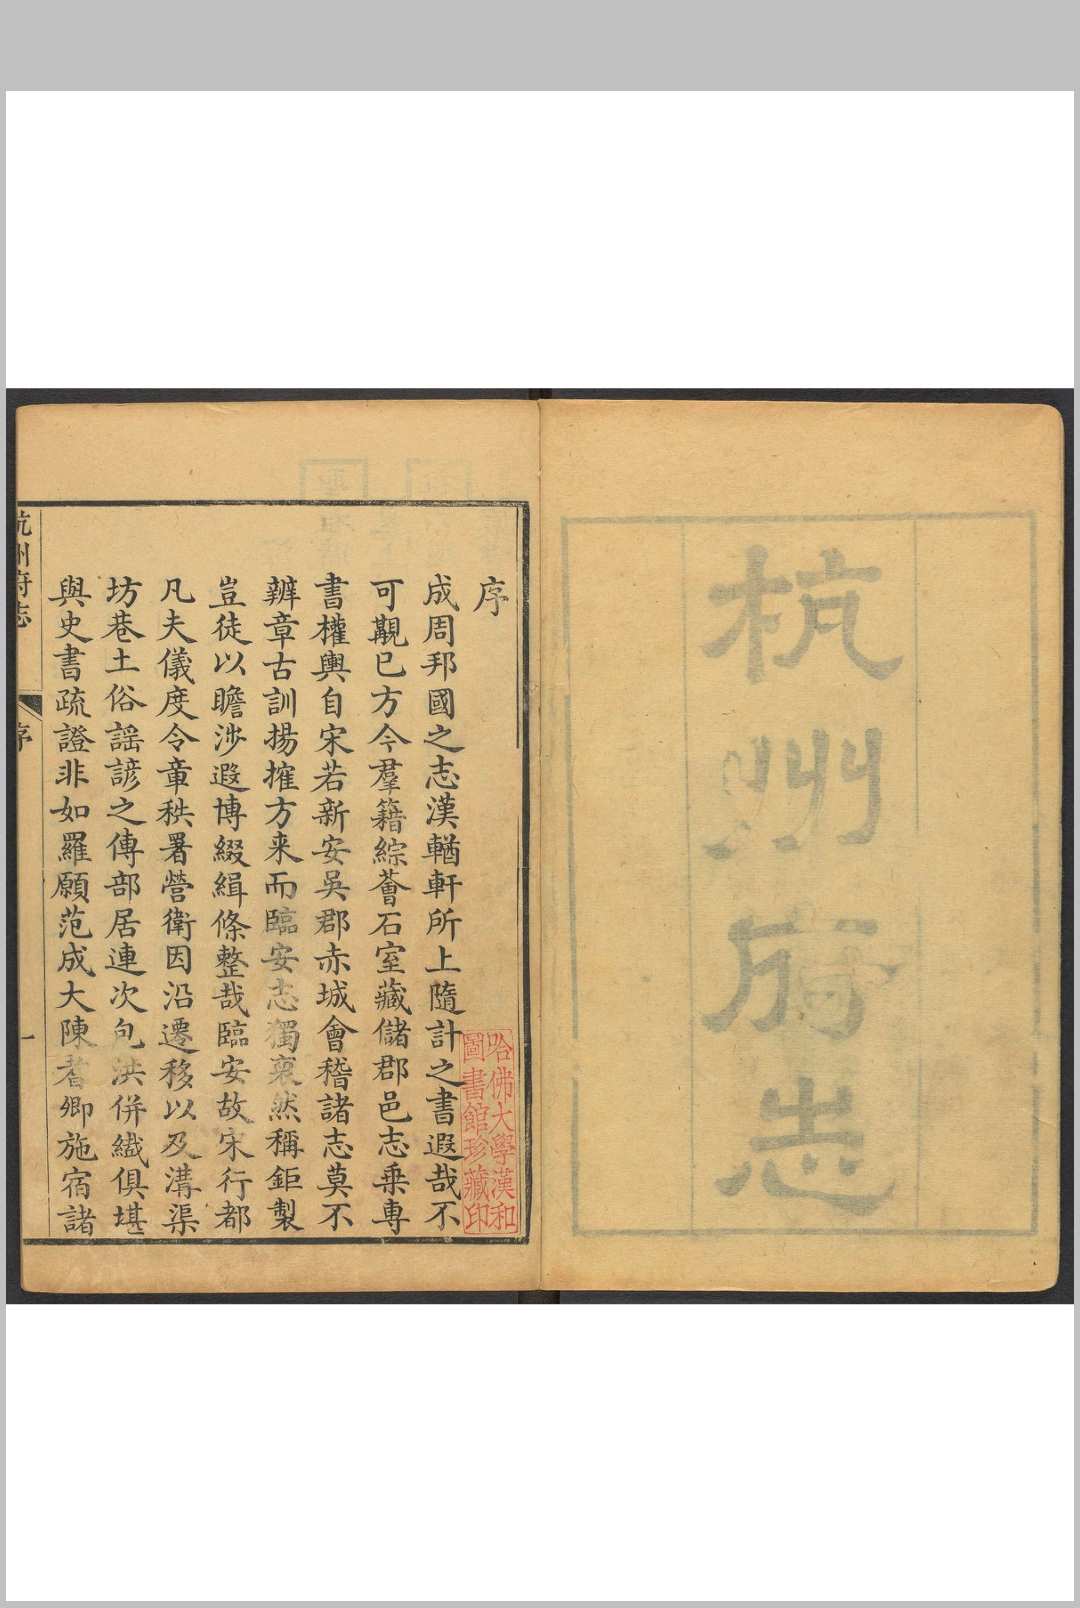 杭州府志
序
成周邦國之志漢輶軒所上隨計之書遐哉不
可覯已方今羣籍綜薈石室藏儲郡邑志乗專
書權輿自宋若新安吳郡赤城會稽諸志莫不
辨章古訓揚搉方来而臨安志獨裒然稱鉅製
豈徒以瞻涉遐博綴緝條整哉臨安故宋行都
凡夫儀度令章秩署營衛因沿遷移以及溝渠
坊巷土俗謡諺之傳部居連次包洪併纎俱堪
與史書疏證非如羅願范成大陳耆卿施宿諸
杭州府志
序
一
哈佛大學漢和
圖書館珍藏印